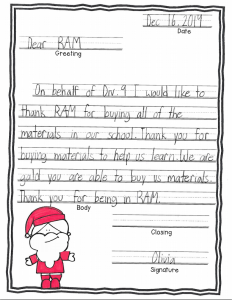 Dec 16, 2019
Date
Dear RAM
Greeting
On behalf of Div. 9 I would like to
thank RAM for buying all of the
materials in our school. Thank you for
buying materials to help us learn. We are
gald you are able to buy us materials.
Thank you for being in RAM.
Body
Closing
Olivia
Signature